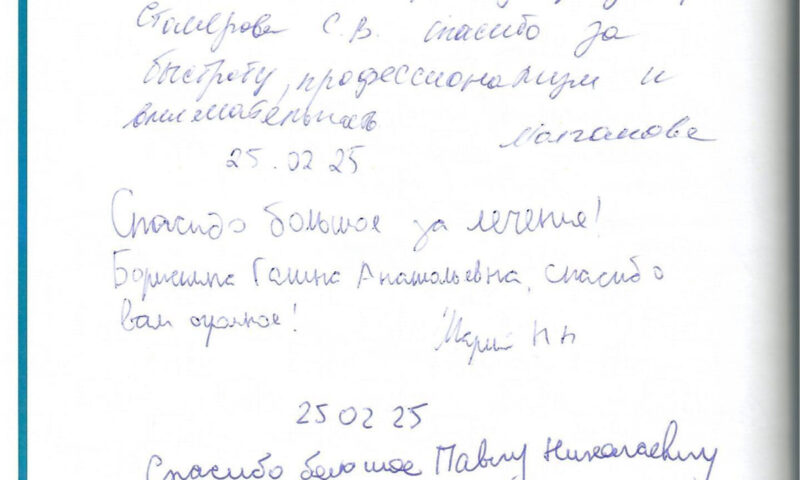 С. В. спасибо за
быстроту, профессионализм и
внимательность
25.02.25
Спасибо большое за лечение!
Галина Анатольевна, спасибо
вам огромное!
25 02 25
Спасибо большое Павлу Николаевичу